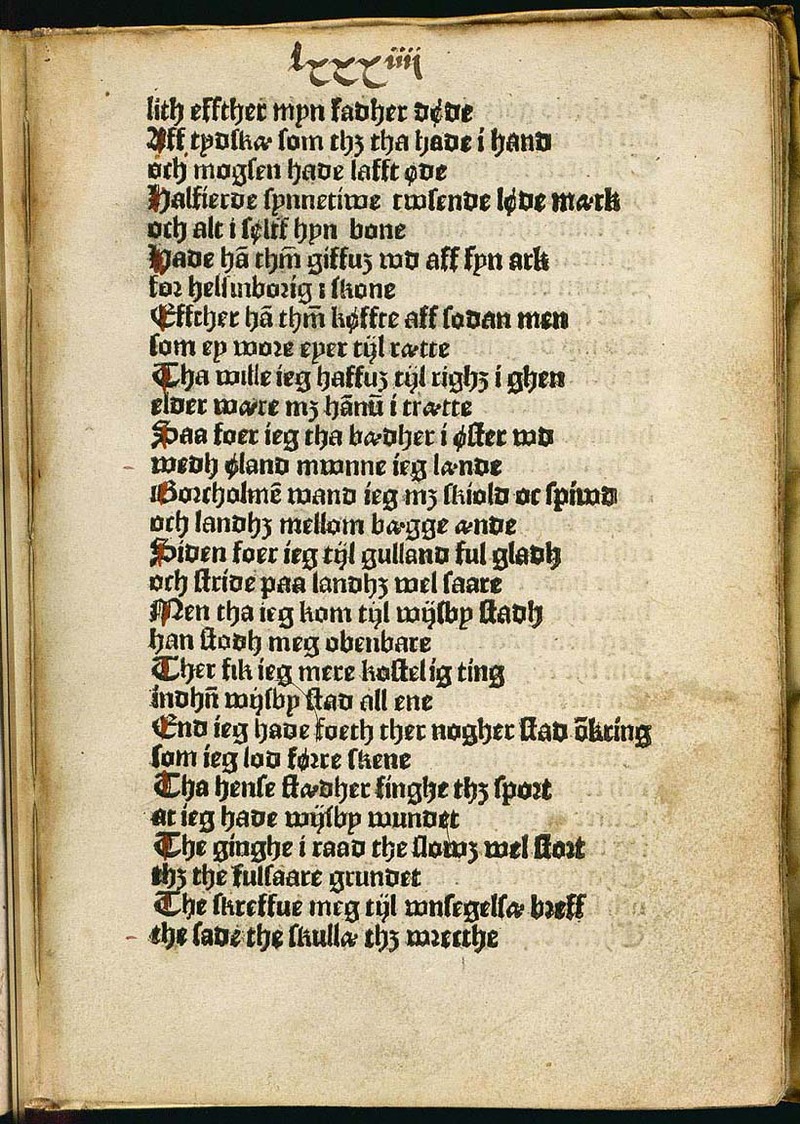 lxxxiiij
lith effther myn fadher døde
Aff tydskæ som thꝫ tha hade i hand
och mogsen hade lafft øde
Halfierde synnetiwe twsende løde mærk
och alt i sølff hyn bone
Hade hā thm̄ giffuꝫ wd aff syn ark
for helsinborig i skone
Effther hā thm̄ køffte aff sodan men
som ey wore eyer tijl rætte
Tha wille ieg haffuꝫ tijl righꝫ i ghen
elder wære mꝫ hānū i trætte
Saa foer ieg tha bædher i øster wd
wedh øland mwnne ieg lænde
Borcholmē wand ieg mꝫ skiold oc spiwd
och landhꝫ mellom bægge ænde
Siden foer ieg tijl gulland ful gladh
och stride paa landhꝫ wel saare
Men tha ieg kom tijl wijsby stadh
han stodh meg obenbare
Ther fik ieg mere kostelig ting
indhn̄ wijsby stad all ene
End ieg hade foeth ther nogher stad ōkring
som ieg lod førre skene
Tha hense stædher finghe thꝫ sport
at ieg hade wijsby wundet
The ginghe i raad the slowꝫ wel stort
thꝫ the fulsaare grundet
The skreffue meg tijl wnsegelsæ breff
the sade the skullæ thꝫ wrecthe